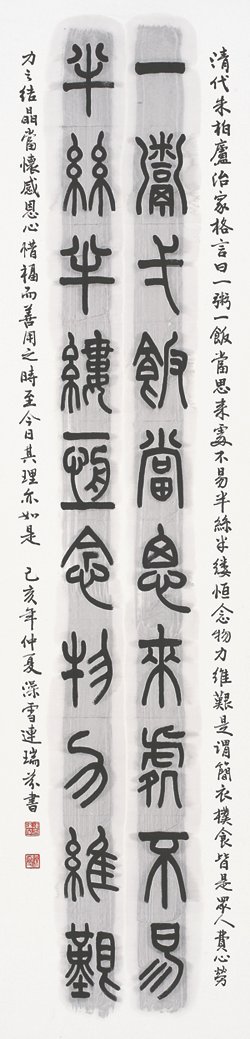 一鬻弌飯當思來處不易
半絲半縷恆念物力維艱
清代朱柏廬治家格言曰一粥一飯當思來處不易半絲半縷恒念物力維艱是謂簡衣樸食皆是眾人費心勞
力之結晶當懷感恩心惜福而善用之時至今日其理亦如是 己亥年仲夏澡雪連瑞芬書